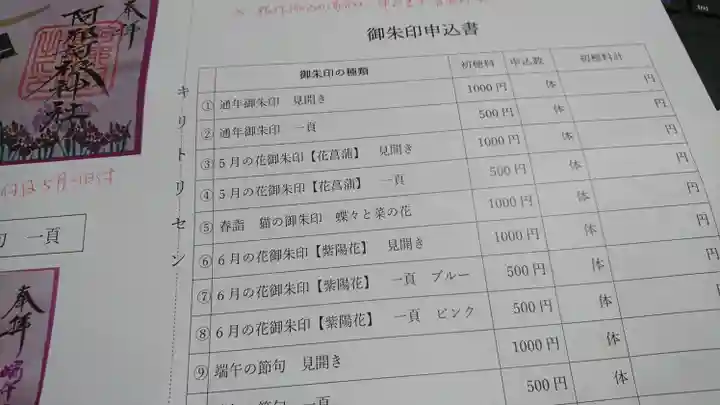 奉拝
阿部野神社
5月1日付
一頁
奉拝
端午
キリトリセン
御朱印申込書
御朱印の種類 初穂料 申込数 初穂料計
① 通年御朱印 見開き 1000円 体 円
② 通年御朱印 一頁 500円 体 円
③ 5月の花御朱印【花菖蒲】 見開き 1000円 体 円
④ 5月の花御朱印【花菖蒲】 一頁 500円 体 円
⑤ 春詣 猫の御朱印 蝶々と菜の花 1000円 体 円
⑥ 6月の花御朱印【紫陽花】 見開き 1000円 体 円
⑦ 6月の花御朱印【紫陽花】 一頁 ブルー 500円 体 円
⑧ 6月の花御朱印【紫陽花】 一頁 ピンク 500円 体 円
⑨ 端午の節句 見開き 1000円 体
節句 一頁 500円 体